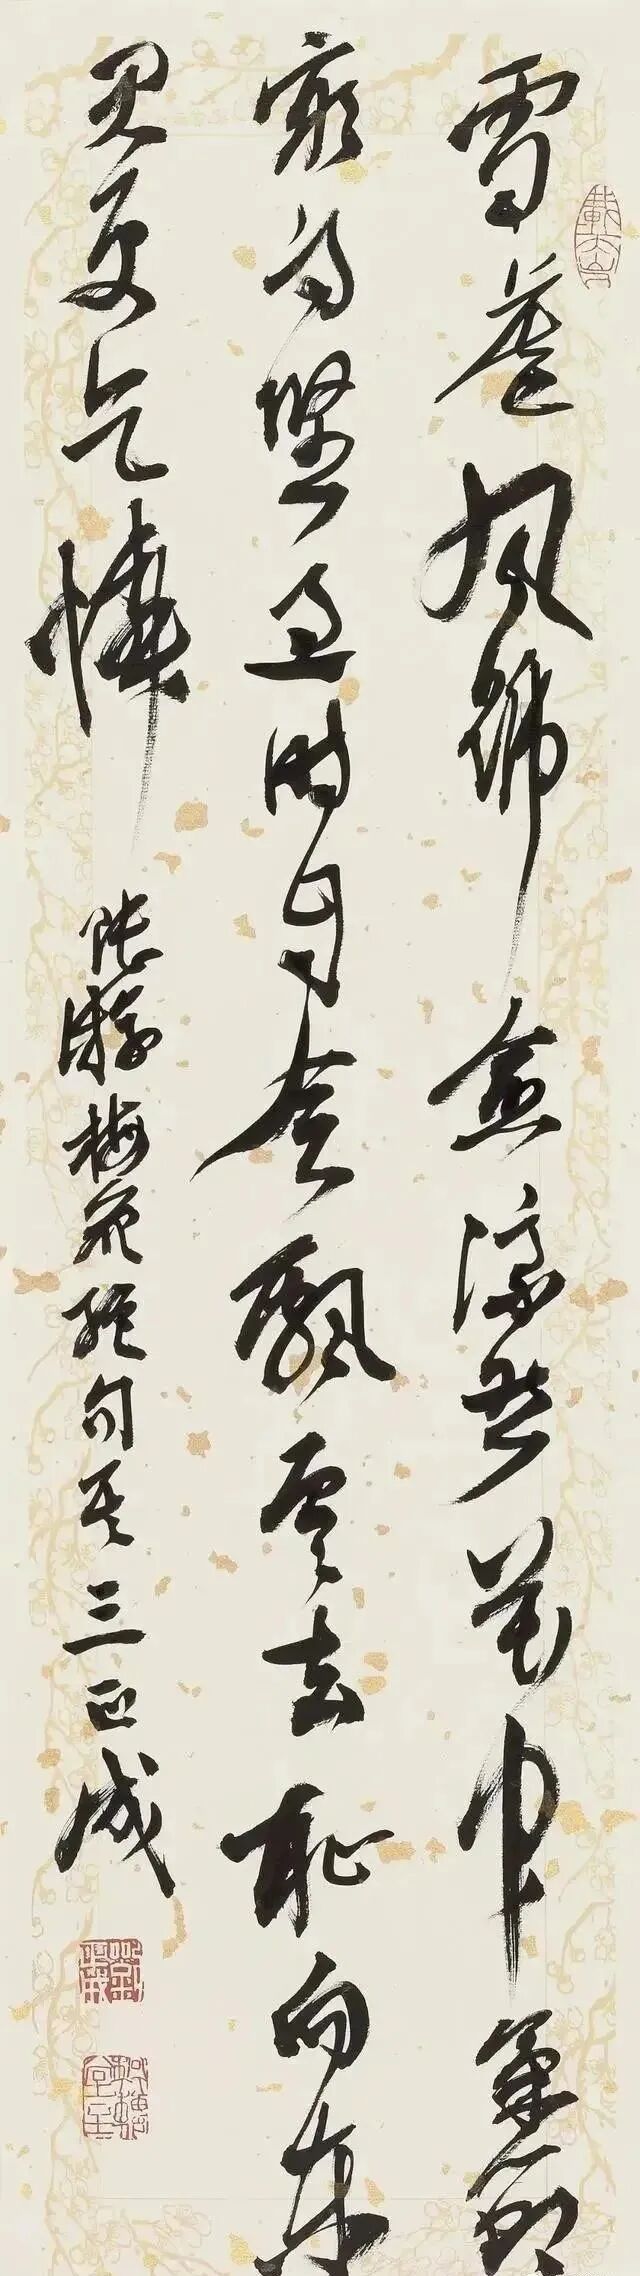 雪虐风号愈凛然花中气节
最高坚过时自会飘零去耻向东
君更乞怜
陆游梅花绝句其三正成